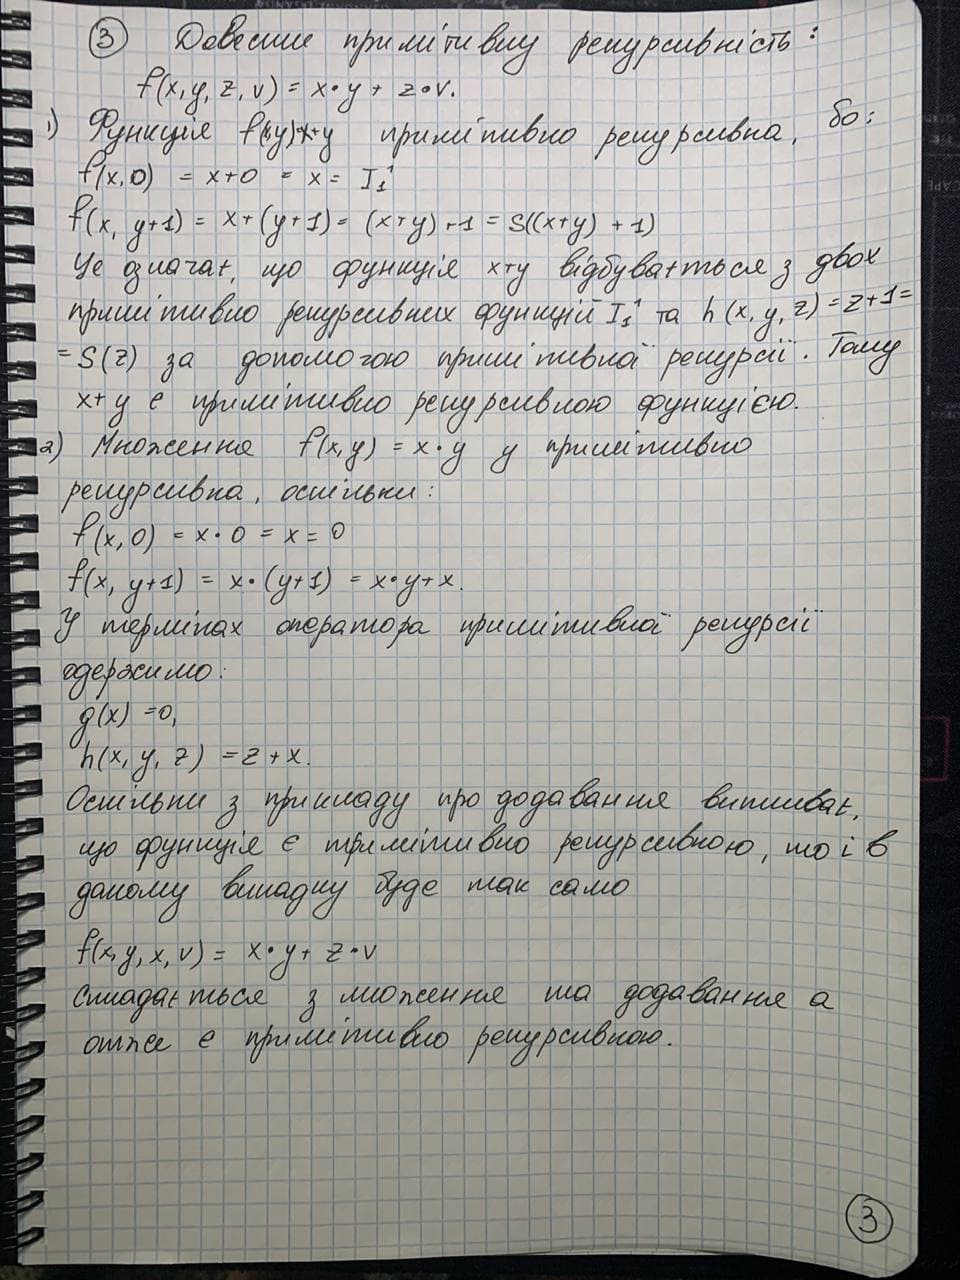 ③ Довести примітивну рекурсивність:
f(x, y, z, v) = x·y + z·v.
1) Функція f(x,y)=x+y примітивно рекурсивна, бо:
f(x, 0) = x+0 = x = I₁¹
f(x, y+1) = x+(y+1) = (x+y)+1 = S((x+y)+1)
Це означає, що функція x+y відбувається з двох
примітивно рекурсивних функцій I₁¹ та h(x, y, z) = z+1 =
= S(z) за допомогою примітивної рекурсії. Тому
x+y є примітивно рекурсивною функцією.
2) Множення f(x, y) = x·y у примітивно
рекурсивна, оскільки:
f(x, 0) = x·0 = x = 0
f(x, y+1) = x·(y+1) = x·y+x.
У термінах оператора примітивної рекурсії
одержимо:
g(x) =0,
h(x, y, z) = z+x.
Оскільки з прикладу про додавання випливає,
що функція є примітивно рекурсивною, то і в
даному випадку буде так само
f(x, y, x, v) = x·y + z·v
Складається з множення та додавання а
отже є примітивно рекурсивною.
③